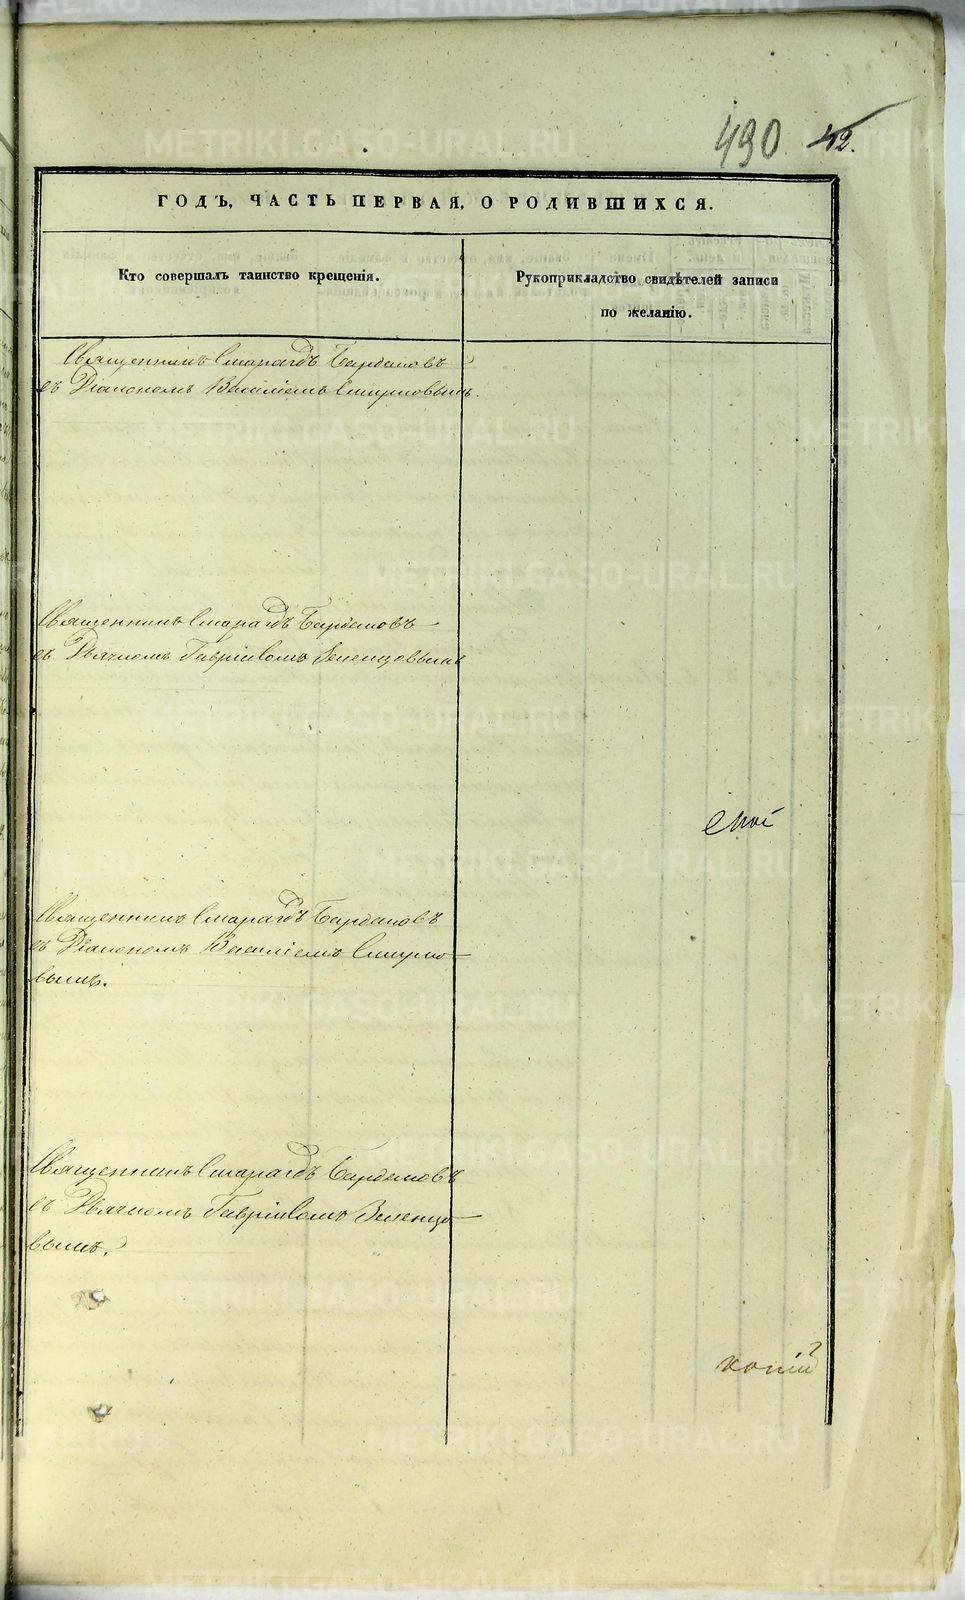 490 42.
ГОДЪ, ЧАСТЬ ПЕРВАЯ, О РОДИВШИХСЯ.
Кто совершалъ таинство крещенія.
Рукоприкладство свидѣтелей записи
по желанію.
Священникъ Смарагдъ Бардаковъ
съ Діакономъ Василіемъ Смирновымъ.
Священникъ Смарагдъ Бардаковъ
съ Дьячкомъ Гавріиломъ Зеленцовымъ
Священникъ Смарагдъ Бардаковъ
съ Діакономъ Василіемъ Смирно-
вымъ.
Священникъ Смарагдъ Бардаковъ
съ Дьячкомъ Гавріиломъ Зеленцо-
вымъ.
METRIKI.GASO-URAL.RU